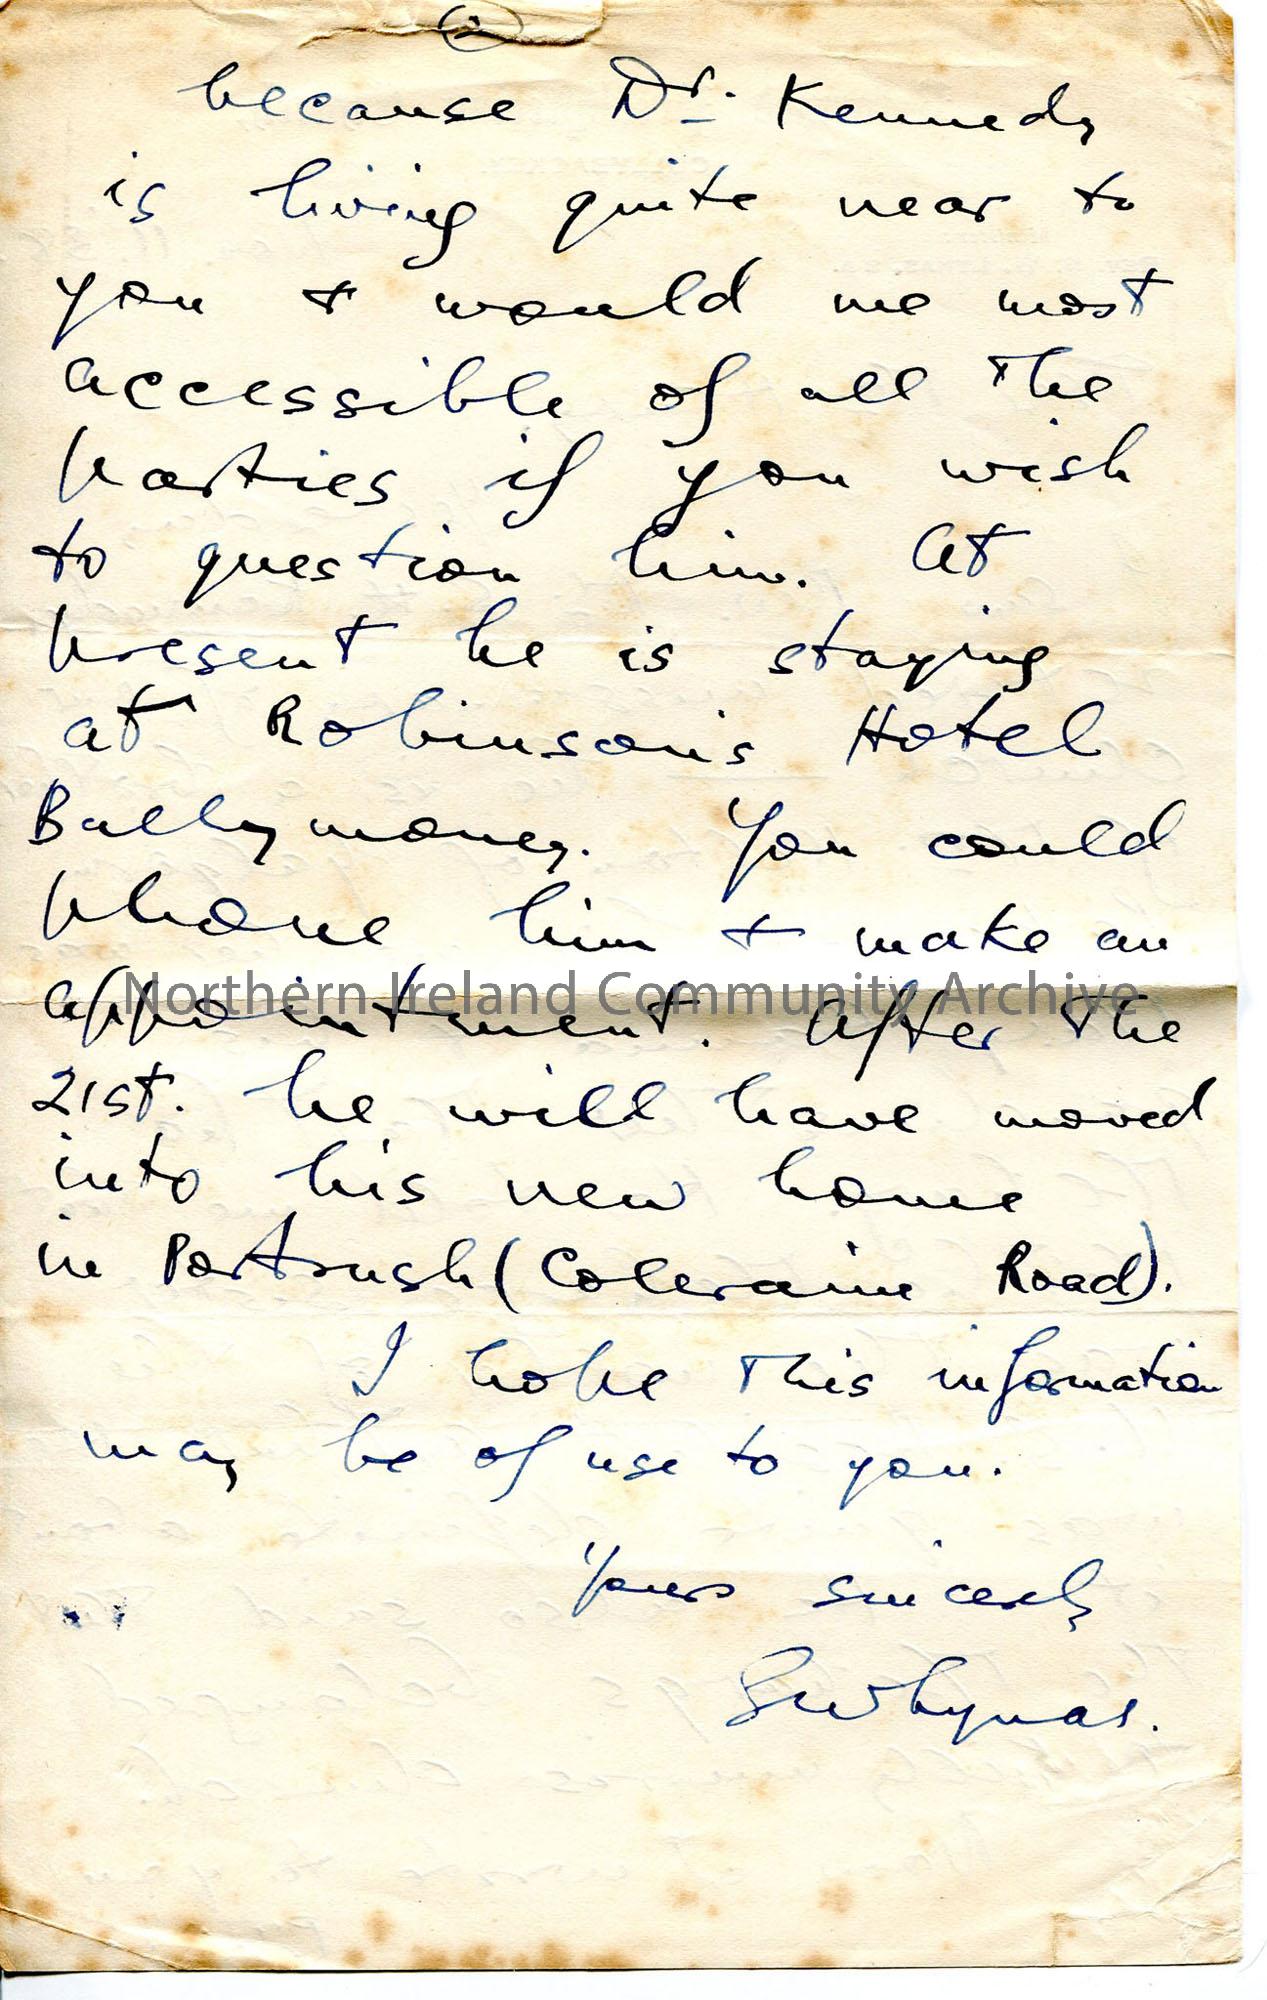 2
because Dr. Kennedy
is living quite near to
you + would me most
accessible of all the
parties if you wish
to question him. At
present he is staying
at Robinson's Hotel
Ballymoney. You could
phone him + make an
appointment. After the
Northern Ireland Community Archive
21st. he will have moved
into his new home
in Portrush (Coleraine Road).
I hope this information
may be of use to you.
Yours sincerely